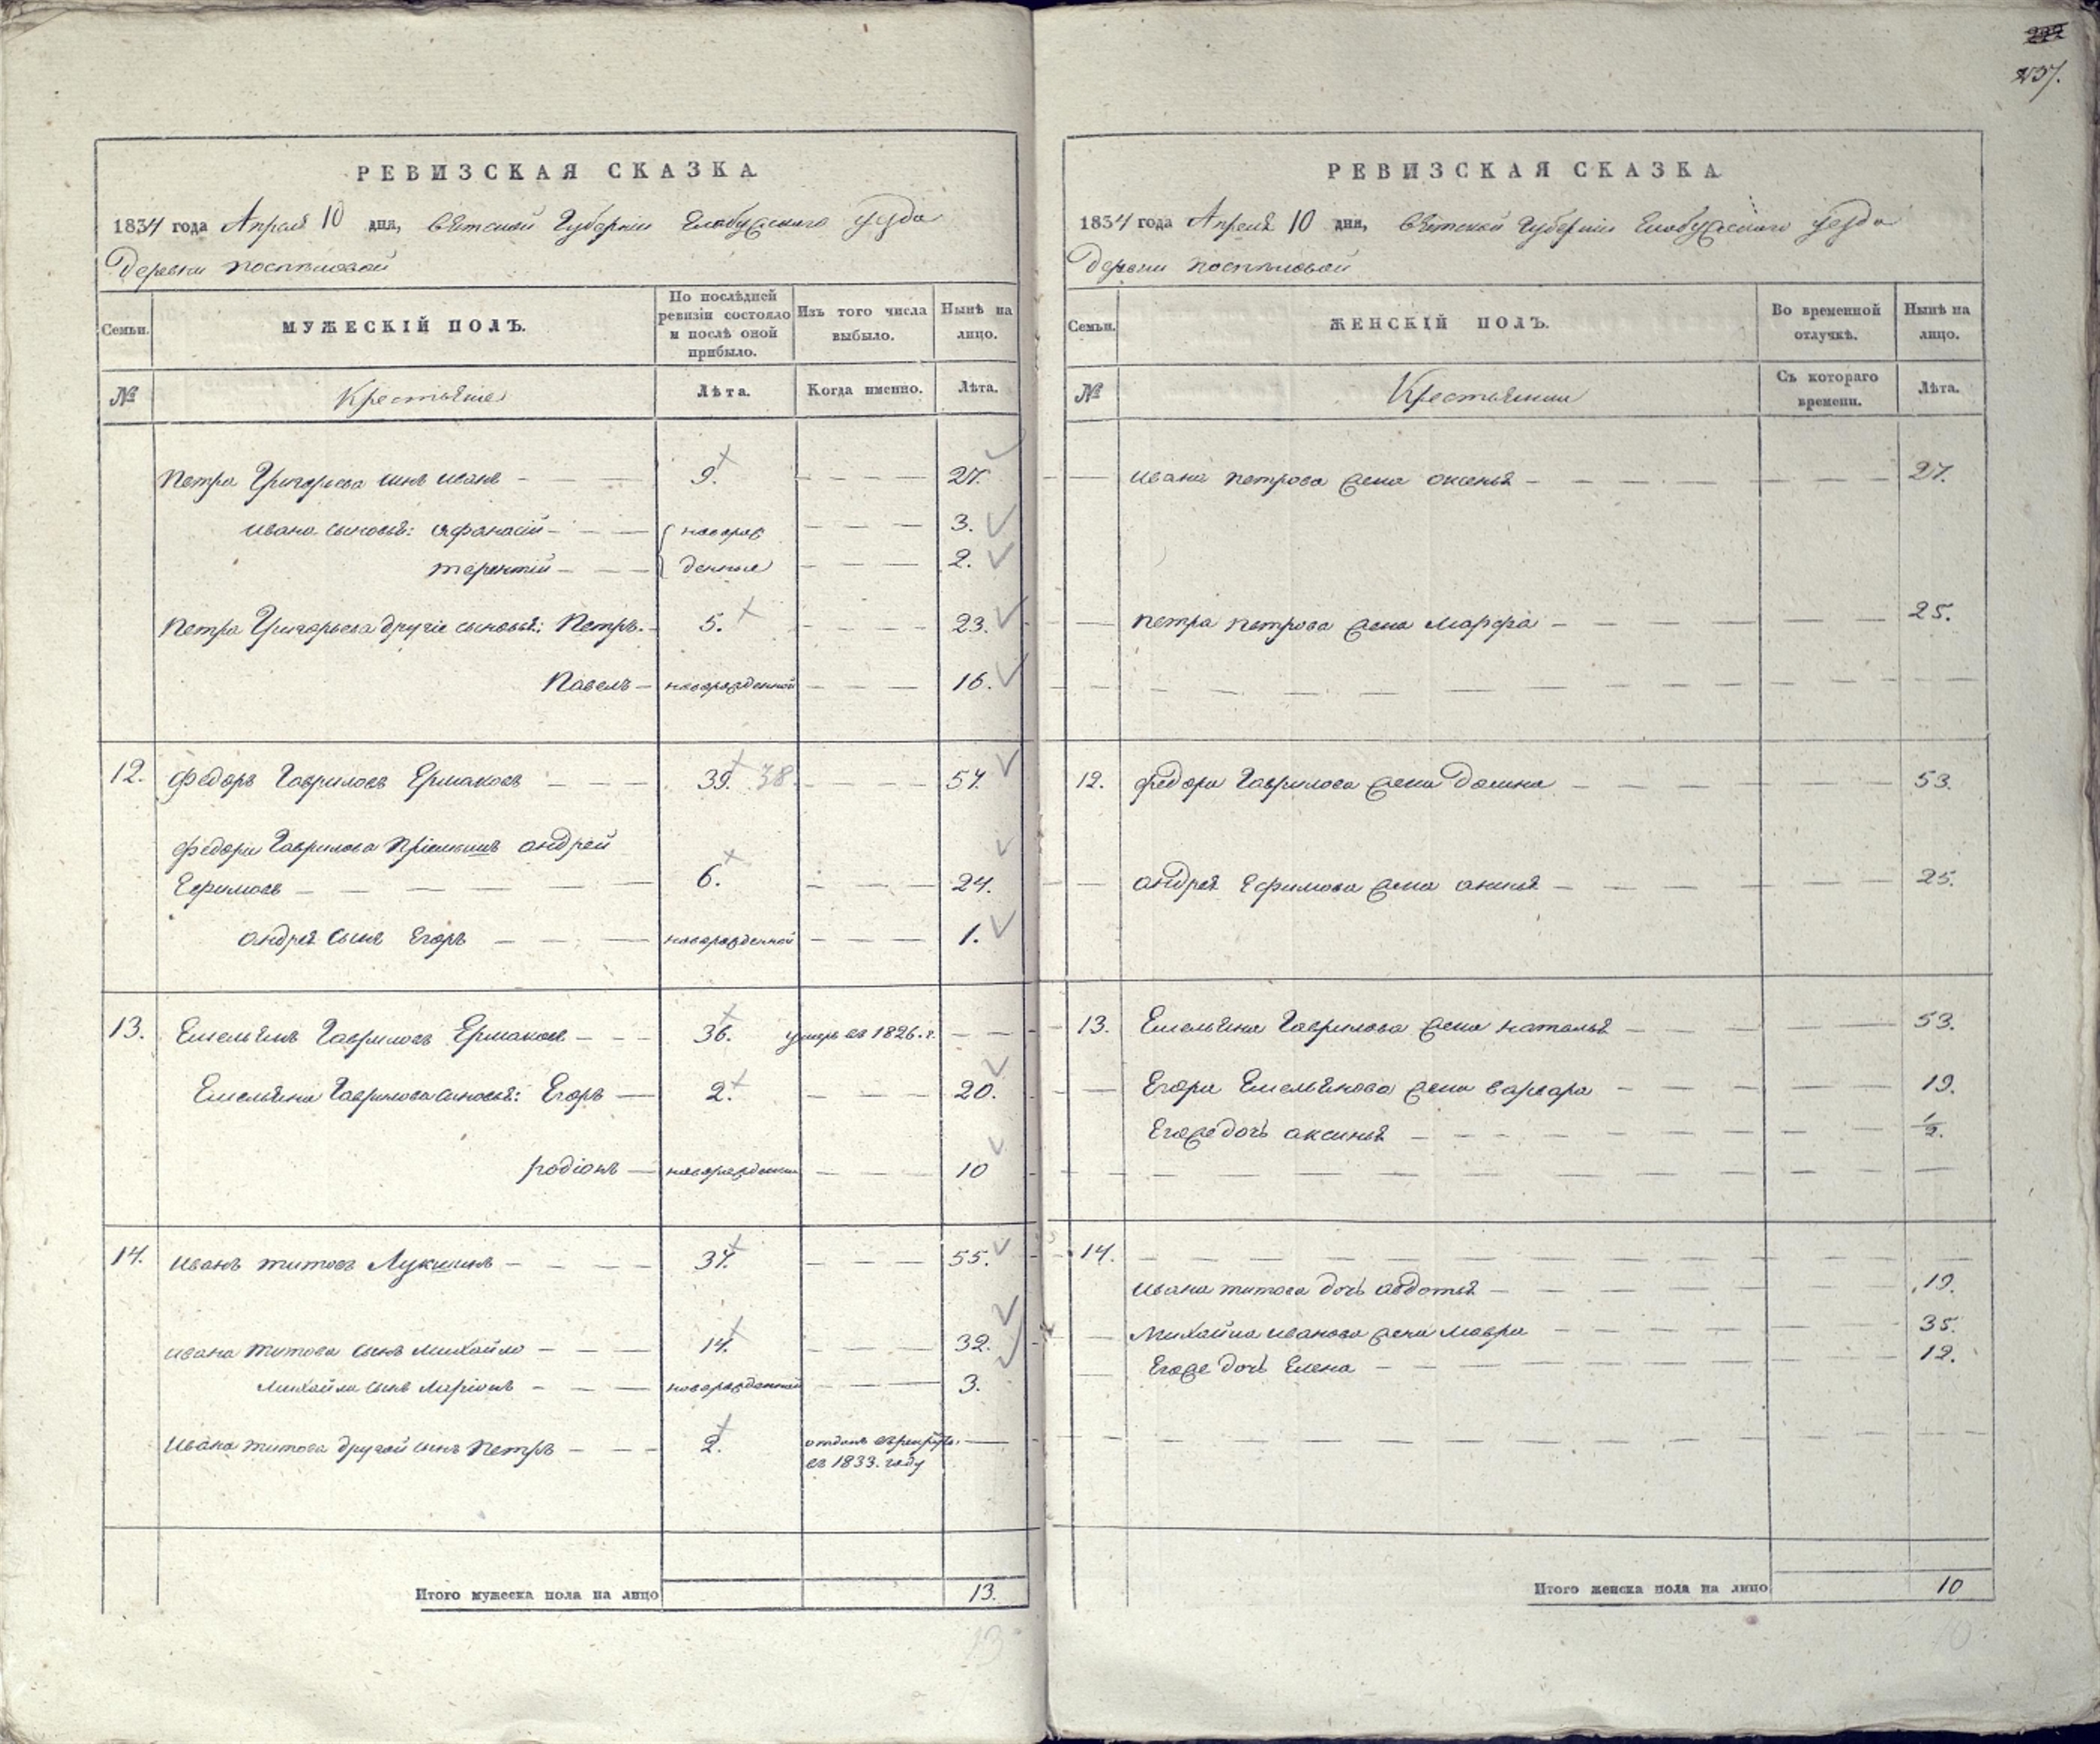 222
237.
РЕВИЗСКАЯ СКАЗКА
1834 года Апреля 10 дня, Вятской Губернии Елабужского уезда
Деревни Поспеловой
Семьи.
МУЖЕСКІЙ ПОЛЪ.
По послѣдней ревизіи состояло и послѣ оной прибыло.
Изъ того числа выбыло.
Нынѣ на лицо.
№
Крестьяне
Лѣта.
Когда именно.
Лѣта.
Петра Григорьева сынъ Иванъ — — 9. — — — 27.
Ивана сыновья: Афанасій — — — новорож — — — 3.
Терентій — — — денные — — — 2.
Петра Григорьева другіе сыновья: Петръ. — 5. — — — 23.
Павелъ — новорожденной — — — 16.
12. Федоръ Гавриловъ Ермаковъ — — — 39. 38 — — — 57.
Федора Гаврилова Пріемышъ Андрей
Ефимовъ — — — — — — 6. — — — 24.
Андрея сынъ Егоръ — — — новорожденной — — — 1.
13. Емельянъ Гавриловъ Ермаковъ — — — 36. умеръ въ 1826. г. — — —
Емельяна Гаврилова сыновья: Егоръ — 2. — — — 20.
Родіонъ — новорожденный — — — 10
14. Иванъ Титовъ Лукшинъ — — — — 37. — — — 55.
Ивана Титова сынъ Михайло — — — 14. — — — 32.
Михайла сынъ Ларіонъ — — — новорожденной — — — 3.
Ивана Титова другой сынъ Петръ — — — 2. отданъ въ рекруты. —
въ 1833. году
Итого мужеска пола на лицо 13.
13
РЕВИЗСКАЯ СКАЗКА
1834 года Апреля 10 дня, Вятской Губернии Елабужского уезда
Деревни Поспеловой
Семьи.
ЖЕНСКІЙ ПОЛЪ.
Во временной отлучкѣ.
Нынѣ на лицо.
№
Крестьянки
Съ котораго времени.
Лѣта.
Ивана Петрова жена Оксенья — — — — 27.
Петра Петрова жена Марфа — — — — 25.
12. Федора Гаврилова жена Домна — — — — 53.
Андрея Ефимова жена Анна — — — — 25.
13. Емельяна Гаврилова жена Наталья — — — — 53.
Егора Емельянова жена Варвара — — — — 19.
Егоже дочь Аксинья — — — — 1/2.
14. — — — —
Ивана Титова дочь Авдотья — — — — 19.
Михайла Иванова жена Мавра — — — — 35.
Егоже дочь Елена — — — — 12.
Итого женска пола на лицо 10
10